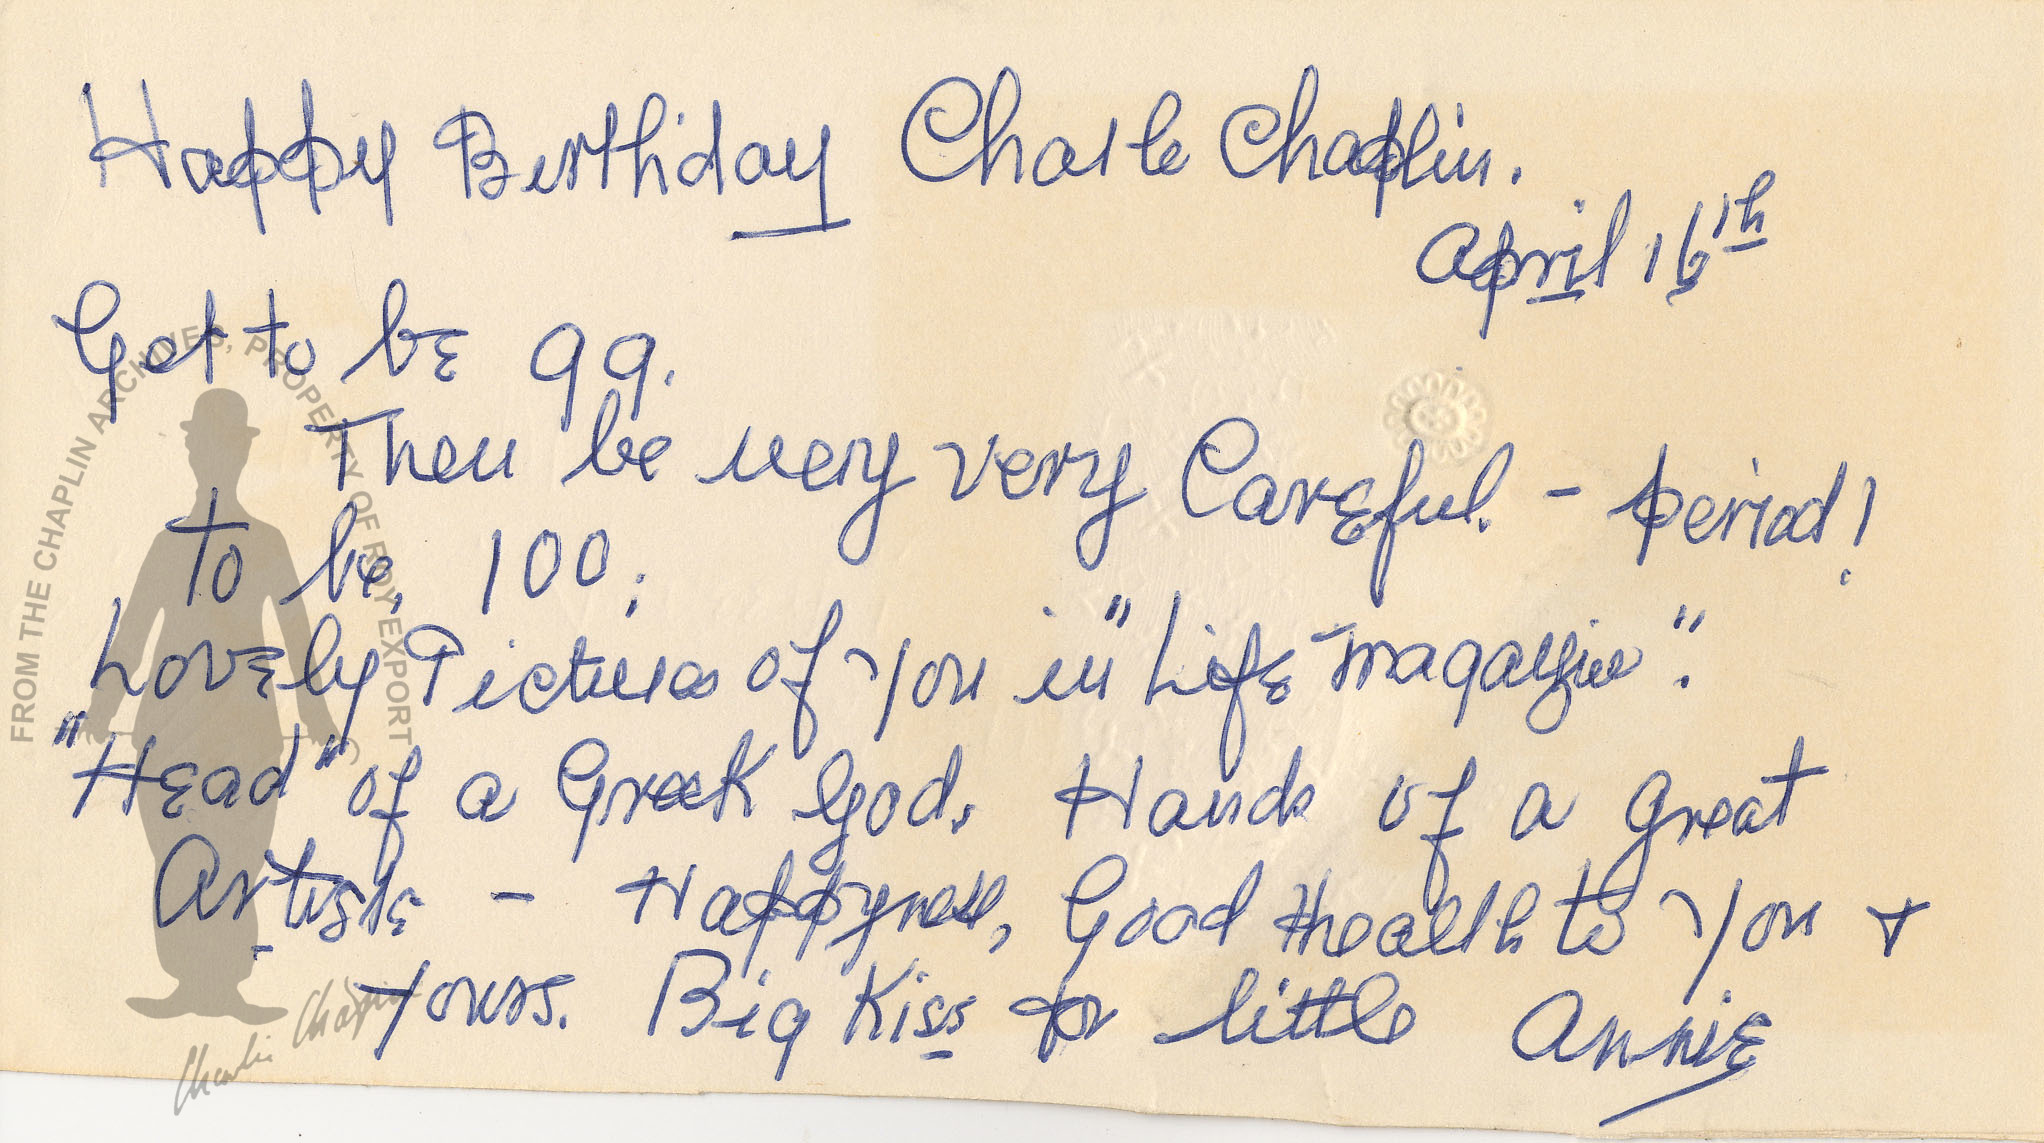 Happy Birthday Charle Chaplin.
April 16th
Get to be 99.
Then be very very Careful. - period!
to be, 100;
Lovely Pictures of You in "Life Magazine".
"Head" of a Greek God. Hands of a great
Artiste - Happyness, Good Health to You +
Yours. Big Kiss for little Annie
FROM THE CHAPLIN ARCHIVES, PROPERTY OF ROY EXPORT
Charlie Chaplin